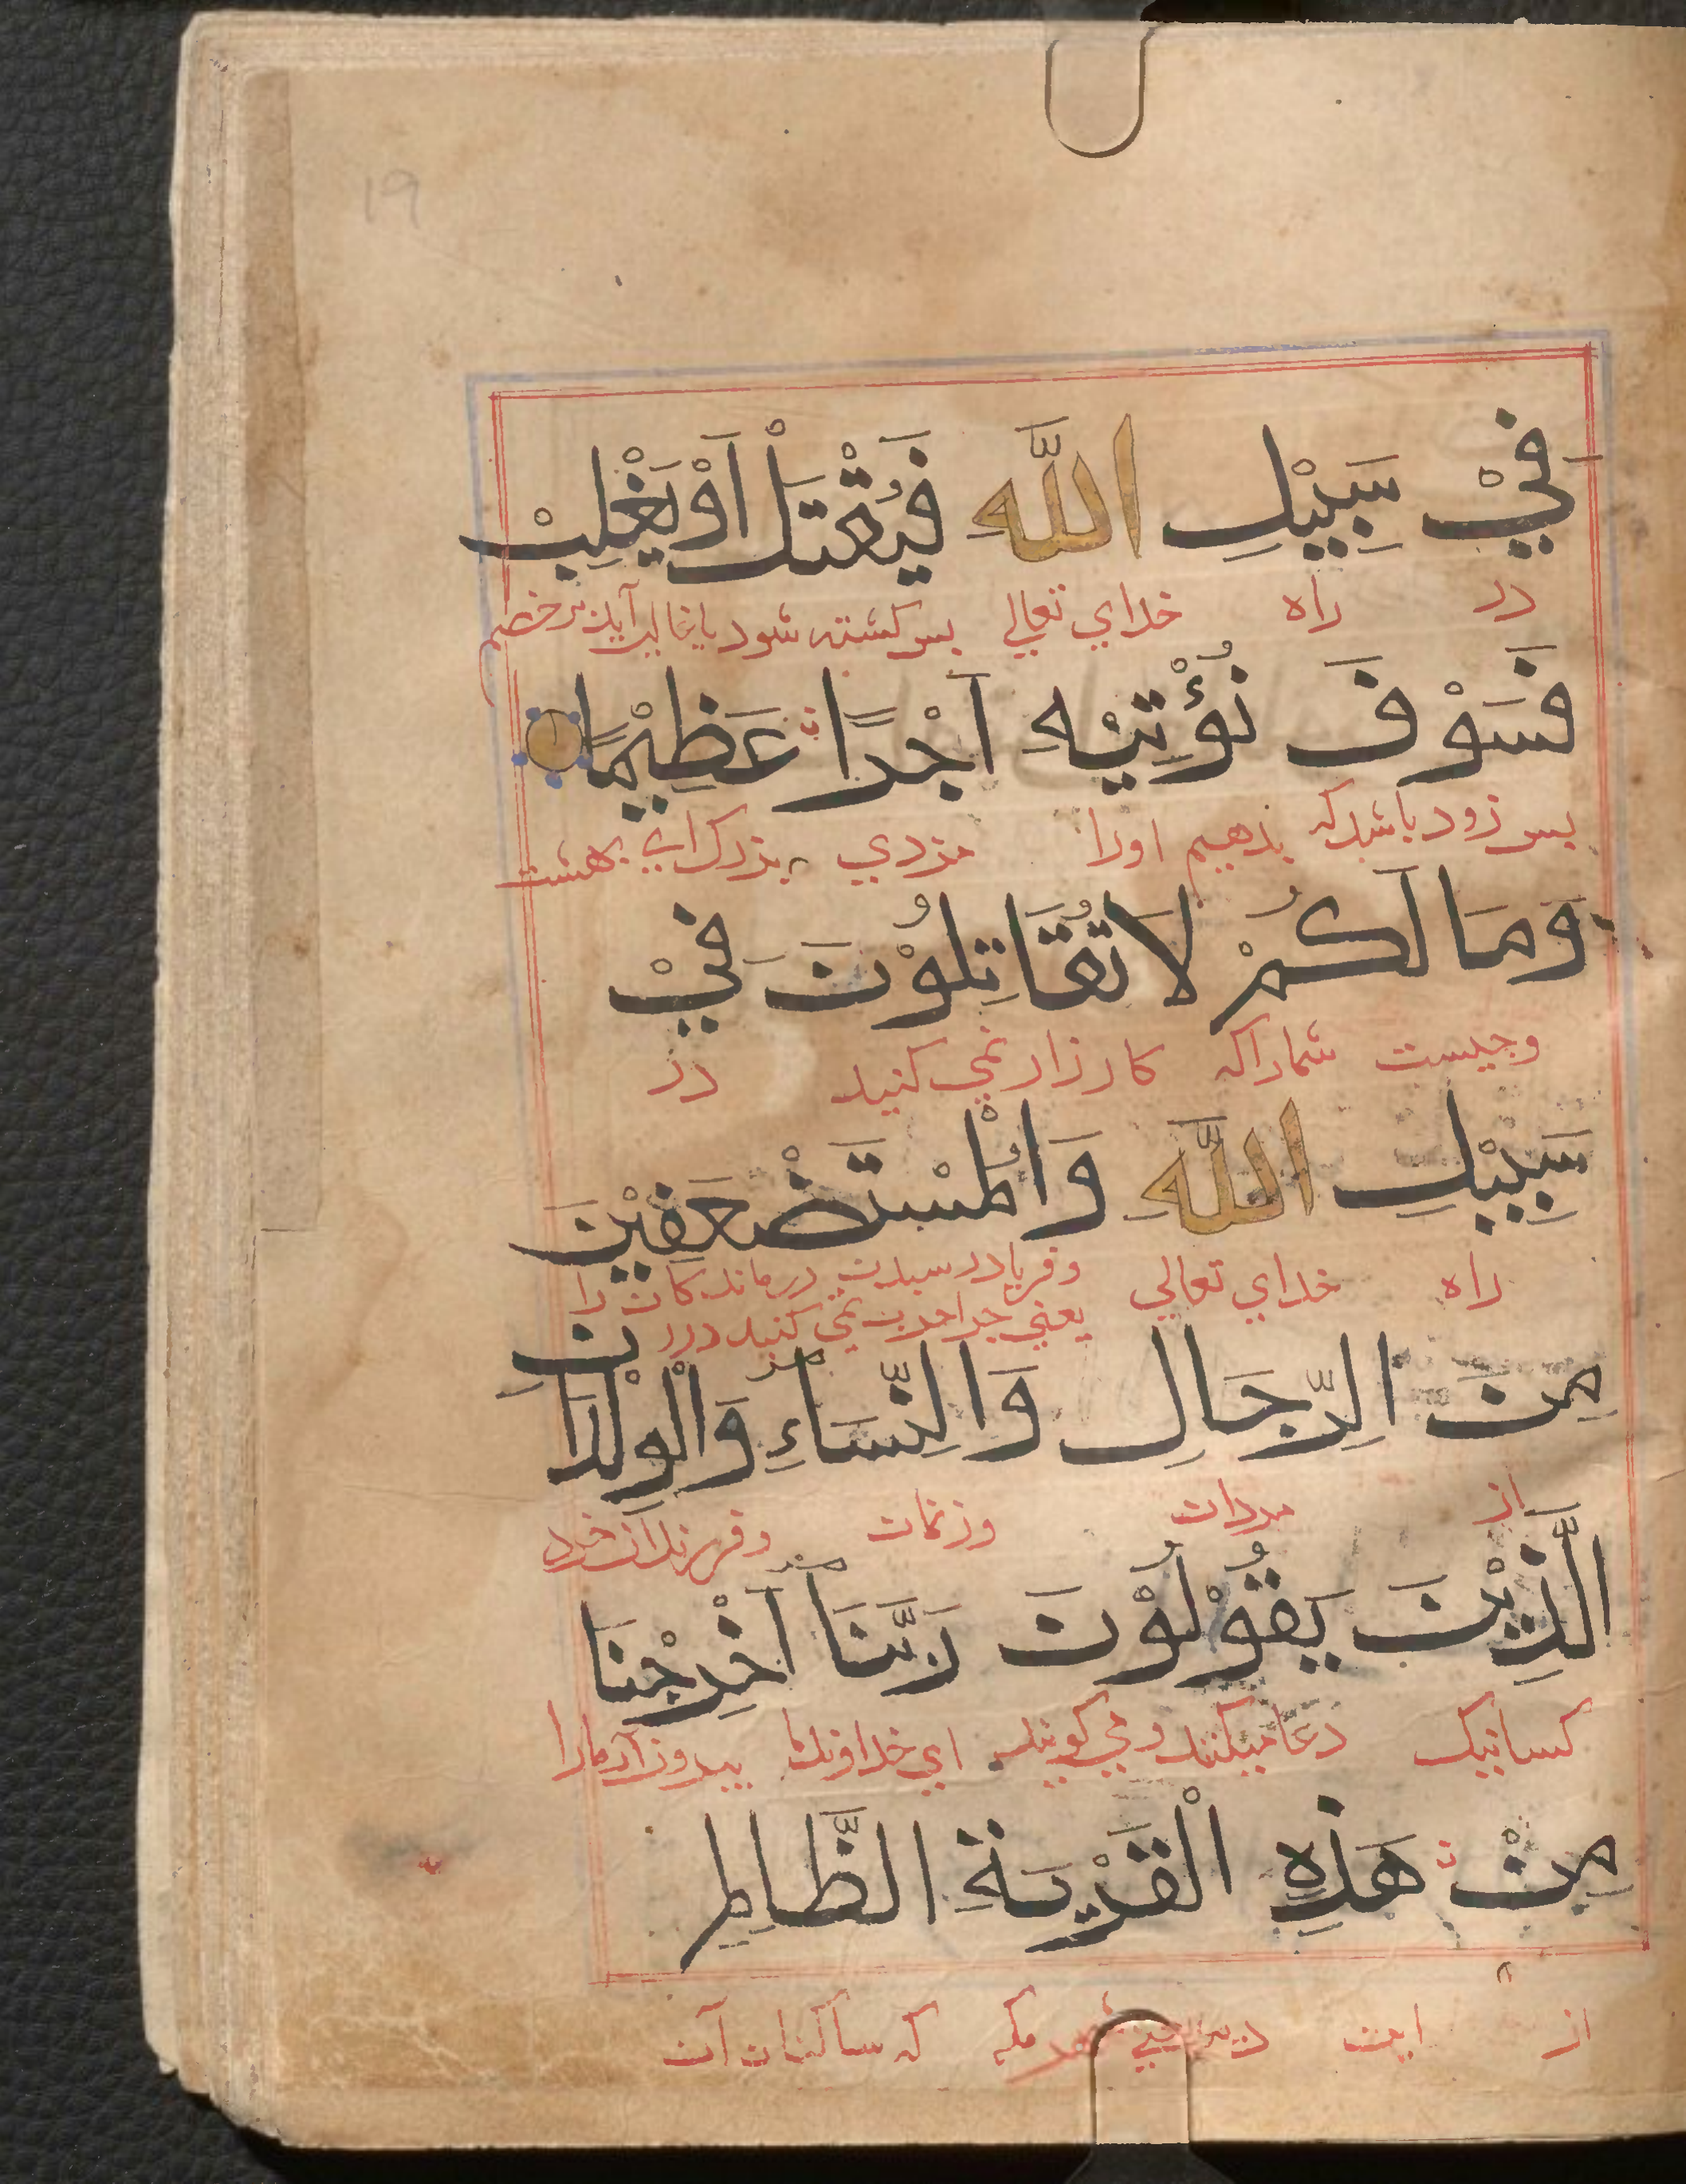 19
فِيْ سَبِيْلِ اللّٰهِ فَيُقْتَلْ اَوْ يَغْلِبْ
در راه خداي تعالي پس کشته شود يا غالب آيد بر خصم
فَسَوْفَ نُؤْتِيْهِ اَجْرًا عَظِيْمًا
پس زود باشد که بدهيم اورا مزدي بزرك اي بهشت
وَمَا لَكُمْ لَا تُقَاتِلُوْنَ فِيْ
وچيست شمارا که کارزار نمي کنيد در
سَبِيْلِ اللّٰهِ وَالْمُسْتَضْعَفِيْنَ
راه خداي تعالي وفرياد رسيدن درماندكان را
يعني چرا حرب نمي کنيد در
مِنَ الرِّجَالِ وَالنِّسَاءِ وَالْوِلْدَانِ
از مردان وزنان وفرزندان خرد
الَّذِيْنَ يَقُوْلُوْنَ رَبَّنَا اَخْرِجْنَا
کسانيک دعا ميکنند ومي کويند اي خداوند ما بيرون آر مارا
مِنْ هَذِهِ الْقَرْيَةِ الظَّالِمِ
از اين ديه يعني شهر مکه که ساکنان آن